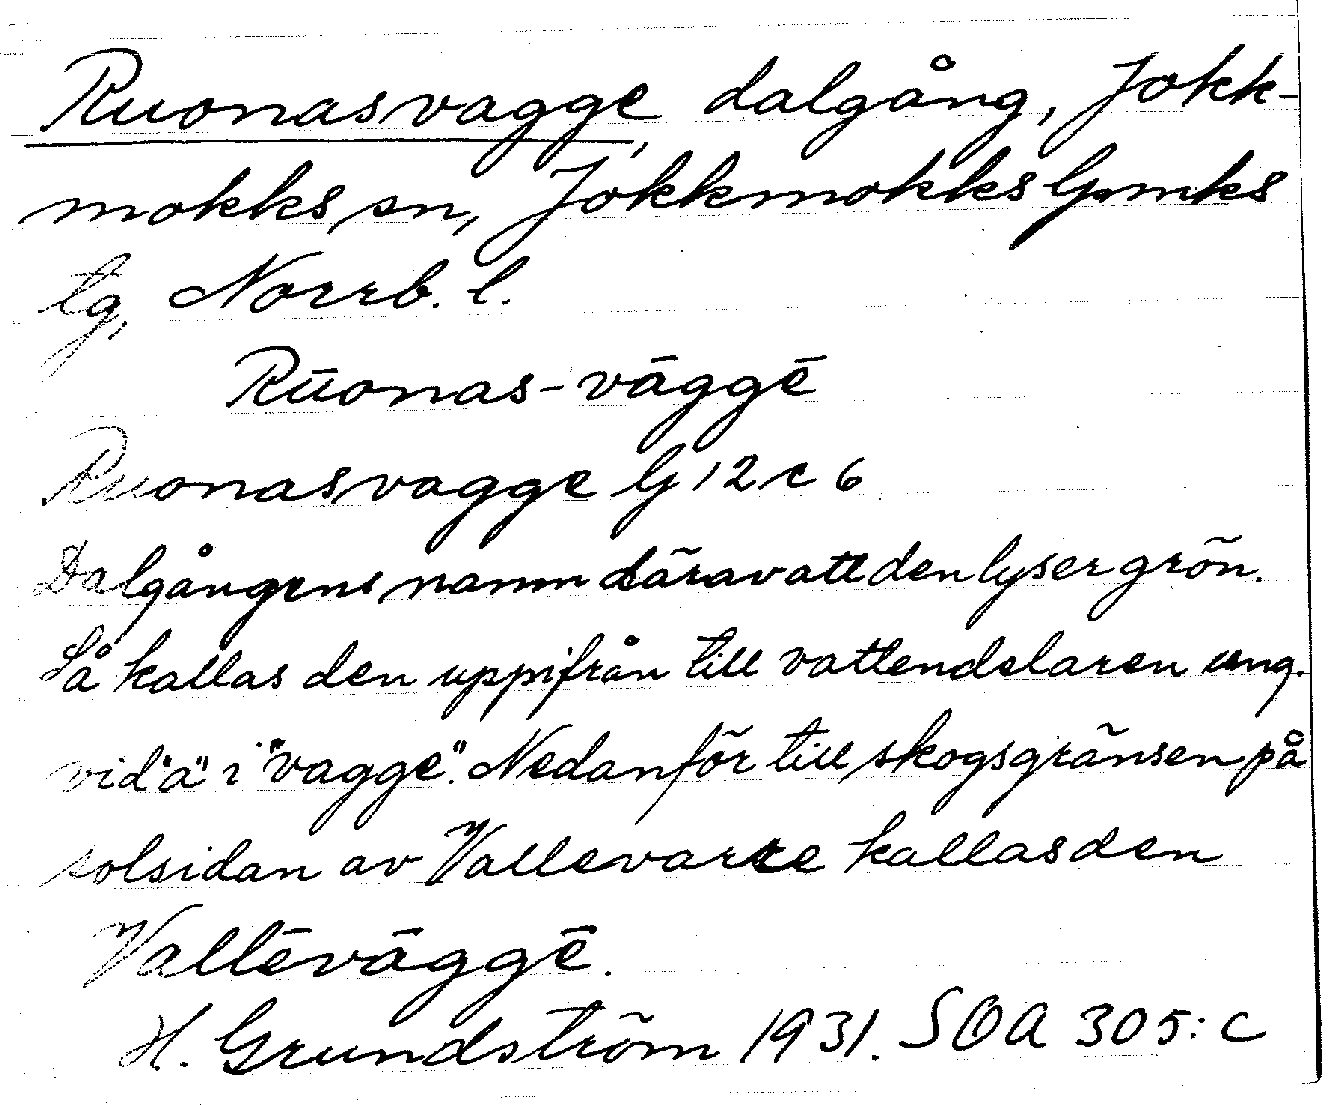 Ruonasvagge, dalgång, Jokk-
mokks sn, Jokkmokks lpmks
tg, Norrb. l.
Rūonas-vāggē
Ruonasvagge G 12 c 6
Dalgångens namn därav att den lyser grön.
Så kallas den uppifrån till vattendelaren ung.
vid "a" i "vagge". Nedanför till skogsgränsen på
solsidan av Vallevarre kallas den
Vallēvāggē.
H. Grundström 1931. SOA 305: c